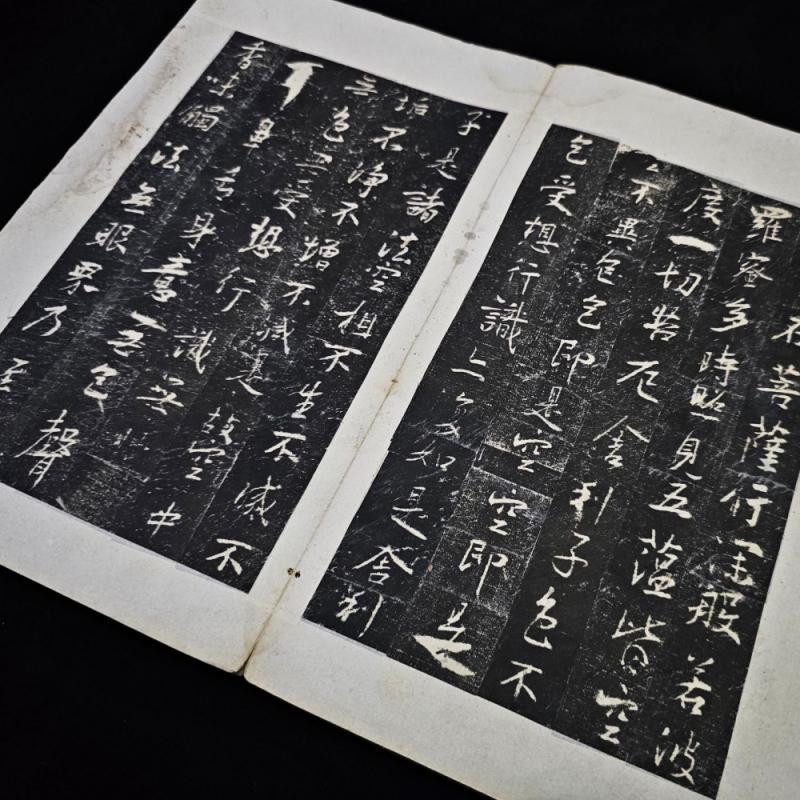 在菩薩行深般若波
羅蜜多時照見五蘊皆空
度一切苦厄舍利子色不
不異色色即是空空即是
色受想行識亦復如是舍利
子是諸法空相不生不滅不
垢不淨不增不減是故空中
無色無受想行識無眼
耳鼻舌身意無色聲
香味觸法無眼界乃至